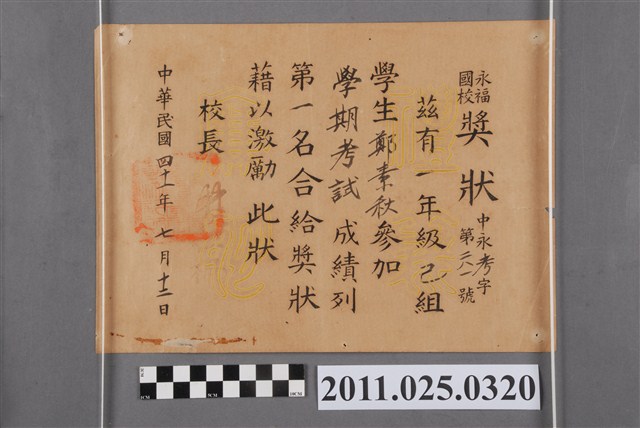 永福
國校
獎狀
中永考字
第六一號
茲有一年級己組
學生鄭素秋參加
學期考試成績列
第一名合給獎狀
藉以激勵此狀
校長
中華民國四十一年七月十二日
2011.025.0320